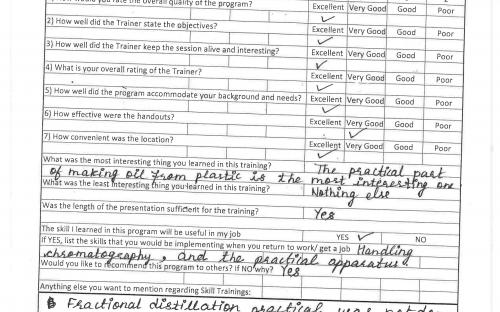 would you rate the overall quality of the program?
Excellent Very Good Good Poor
2) How well did the Trainer state the objectives?
Excellent Very Good Good Poor
3) How well did the Trainer keep the session alive and interesting?
Excellent Very Good Good Poor
4) What is your overall rating of the Trainer?
Excellent Very Good Good Poor
5) How well did the program accommodate your background and needs?
Excellent Very Good Good Poor
6) How effective were the handouts?
Excellent Very Good Good Poor
7) How convenient was the location?
Excellent Very Good Good Poor
What was the most interesting thing you learned in this training? The practical part
of making oil from plastic is the most interesting one
What was the least interesting thing you learned in this training? Nothing else
Was the length of the presentation sufficient for the training? Yes
The skill I learned in this program will be useful in my job YES NO
If YES, list the skills that you would be implementing when you return to work/ get a job Handling
chromatography, and the practical apparatus
Would you like to recommend this program to others? if NO why? Yes
Anything else you want to mention regarding Skill Trainings:
Fractional distillation practical was not